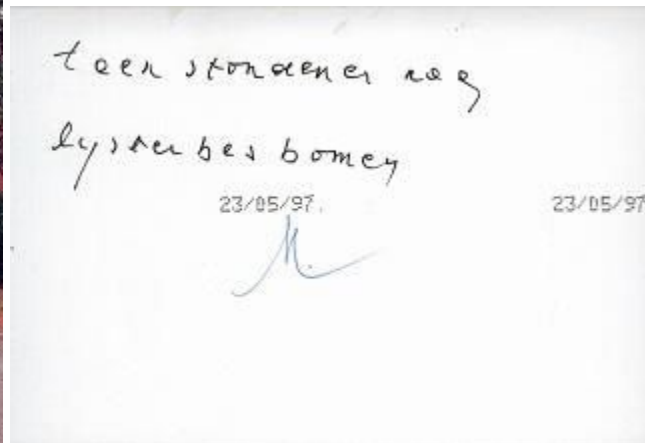 toen stonden er nog
lysterbes bomen
23/05/97. 23/05/97
M.